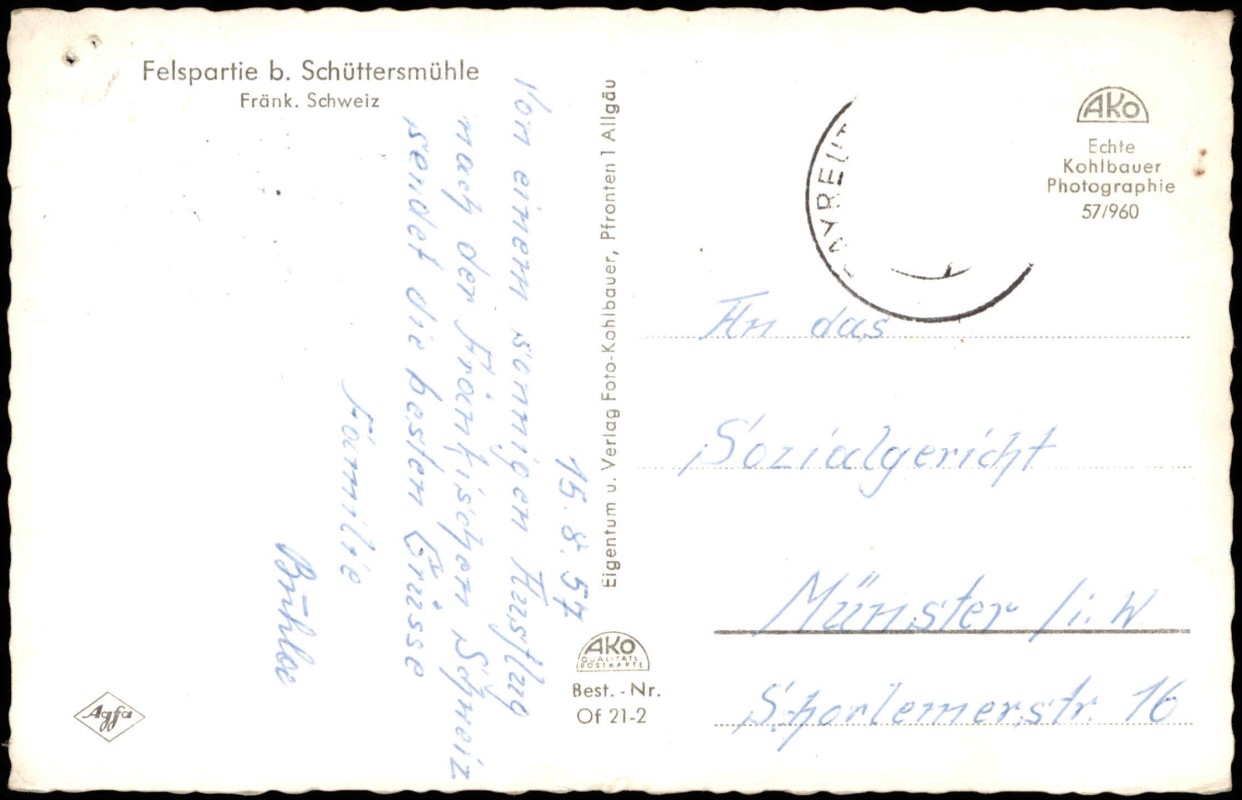 Felspartie b. Schüttersmühle
Fränk. Schweiz
15.8.57
Von einem sonnigen Ausflug
nach der Fränkischen Schweiz
sendet die besten Grüsse
Familie
Agfa
Eigentum u. Verlag Foto-Kohlbauer, Pfronten 1 Allgäu
AKO
QUALITÄTS
POSTKARTE
Best.-Nr.
Of 21-2
AKO
Echte
Kohlbauer
Photographie
57/960
An das
Sozialgericht
Münster i. W
Shorlemerstr. 16